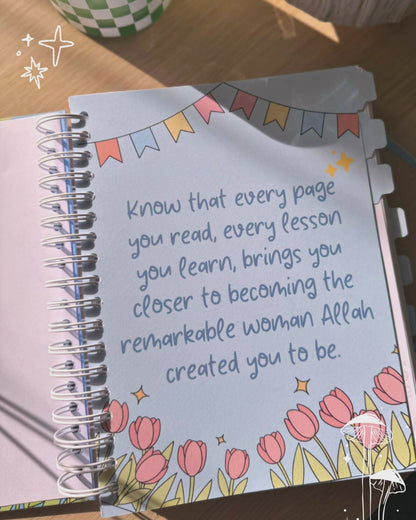 Know that every page
you read, every lesson
you learn, brings you
closer to becoming the
remarkable woman Allah
created you to be.